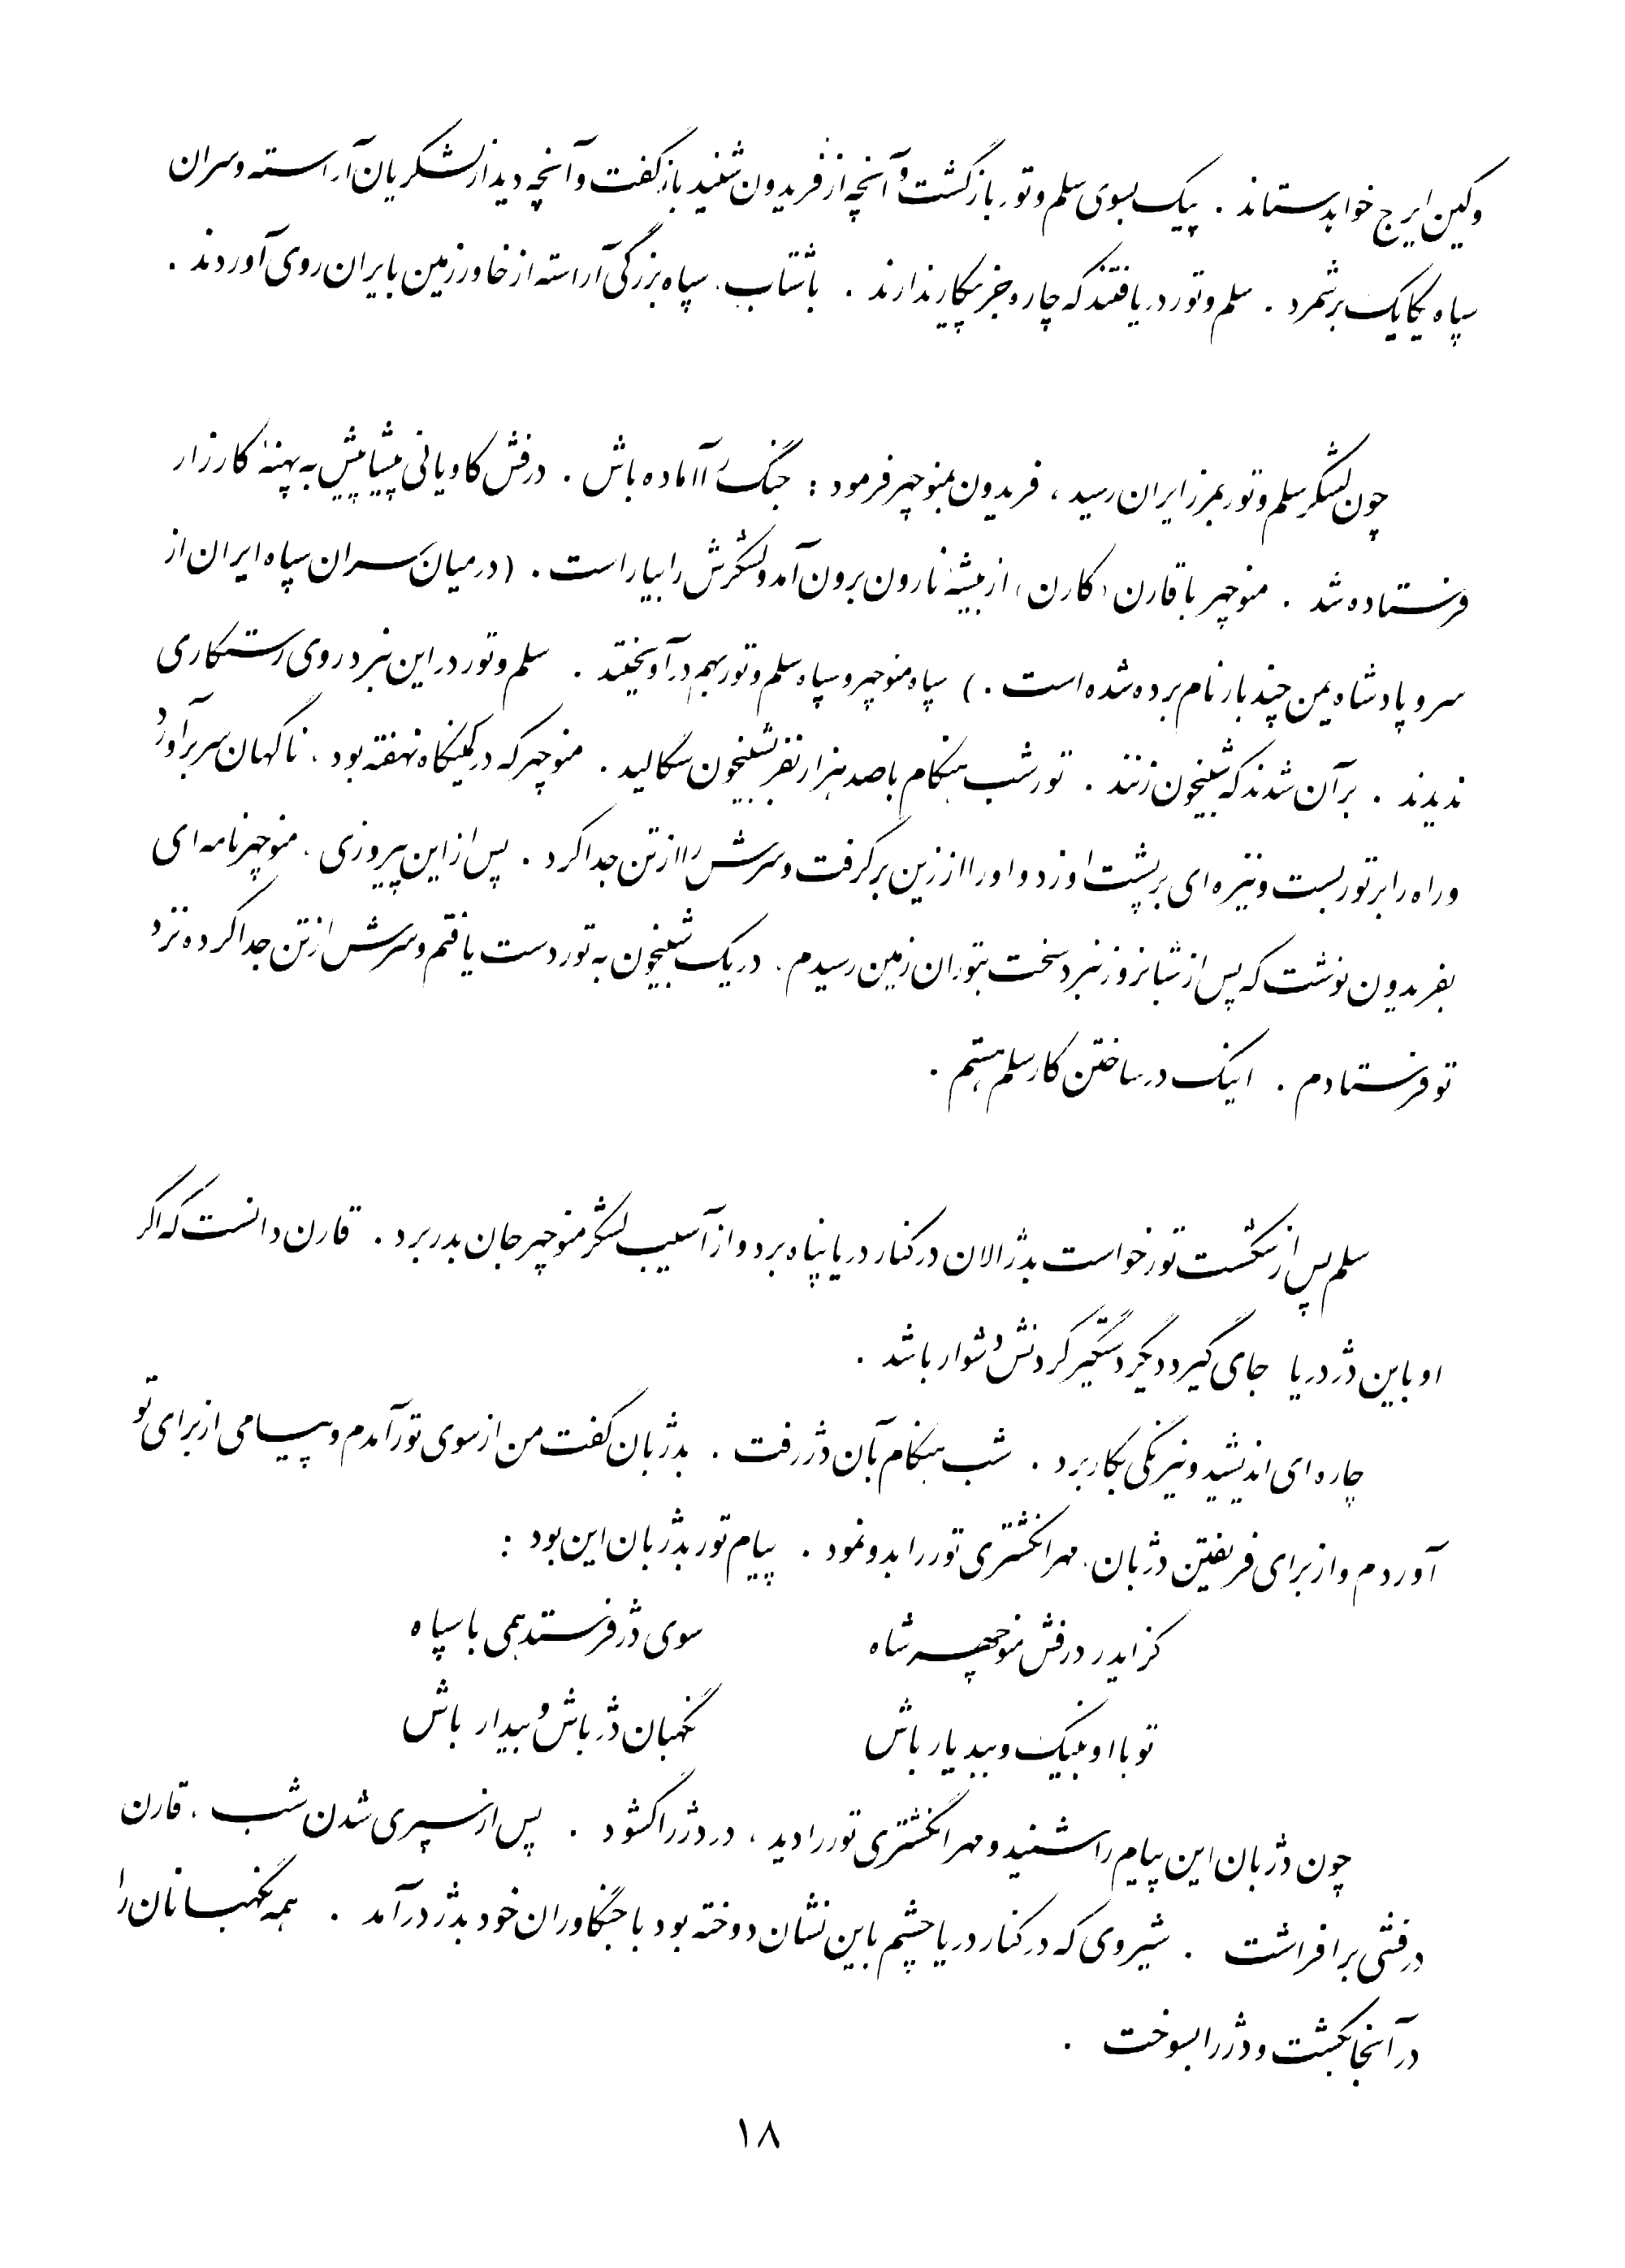 وکین ایرج خواهد ستاند . پیک بسوی سلم و تور بازگشت و آنچه از فریدون شنید بازگفت و آنچه دید از لشکریان آراسته و سران
سپاه یکایک برشمرد . سلم و تور دریافتند که چاره جز پیکار ندارند . باشتاب، سپاه بزرگی آراسته از خاور زمین بایران روی آوردند .
چون لشکر سلم و تور بمرز ایران رسید ، فریدون بمنوچهر فرمود : جنگ را آماده باش . درفش کاویانی پیشاپیش به پهنهٔ کارزار
فرستاده شد . منوچهر با قارن (کارن) از بیشهٔ نارون برون آمد و لشکرش را بیاراست . (در میان سران سپاه ایران از
سرو پادشاه یمن چند بار نام برده شده است .) سپاه منوچهر و سپاه سلم و تور بهم در آویختند . سلم و تور در این نبرد روی رستگاری
ندیدند . بر آن شدند که شبیخون زنند . تور شب هنگام با صد هزار نفر شبیخون سگالید . منوچهر که در کمینگاه نهفته بود ، ناگهان سر برآورد
و راه را بر تور بست و نیزه ای بر پشت او زد و او را از زین برگرفت و سرش را از تن جدا کرد . پس از این پیروزی ، منوچهر نامه ای
بفریدون نوشت که پس از شبانروز نبرد سخت بتوران زمین رسیدم ، در یک شبیخون به تور دست یافتم و سرش از تن جدا کرده نزد
تو فرستادم . اینک در ساختن کار سلم هستم .
سلم پس از شکست تور خواست بدژ الان در کنار دریا پناه برد و از آسیب لشگر منوچهر جان بدر برد . قارن دانست که اگر
او باین دژ دریا جای گیرد دیگر دستگیر کردنش دشوار باشد .
چاره ای اندیشید و نیرنگی بکار برد . شب هنگام بآن دژ رفت . بدژبان گفت من از سوی تور آمدم و پیامی از برای تو
آوردم و از برای فریفتن دژبان، مهر انگشتری تور را بدو نمود . پیام تور بدژبان این بود :
کز ایدر درفش منوچهر شاه سوی دژ فرستد همی با سپاه
تو با او بنیک و ببد یار باش نگهبان دژ باش و بیدار باش
چون دژبان این پیام را شنید و مهر انگشتری تور را دید ، در دژ را گشود . پس از سپری شدن شب ، قارن
درفشی برافراشت . شیروی که در کنار دریا چشم باین نشان دوخته بود با جنگاوران خود بدژ در آمد . همه نگهبانان را
در آنجا بکشت و دژ را بسوخت .
۱۸